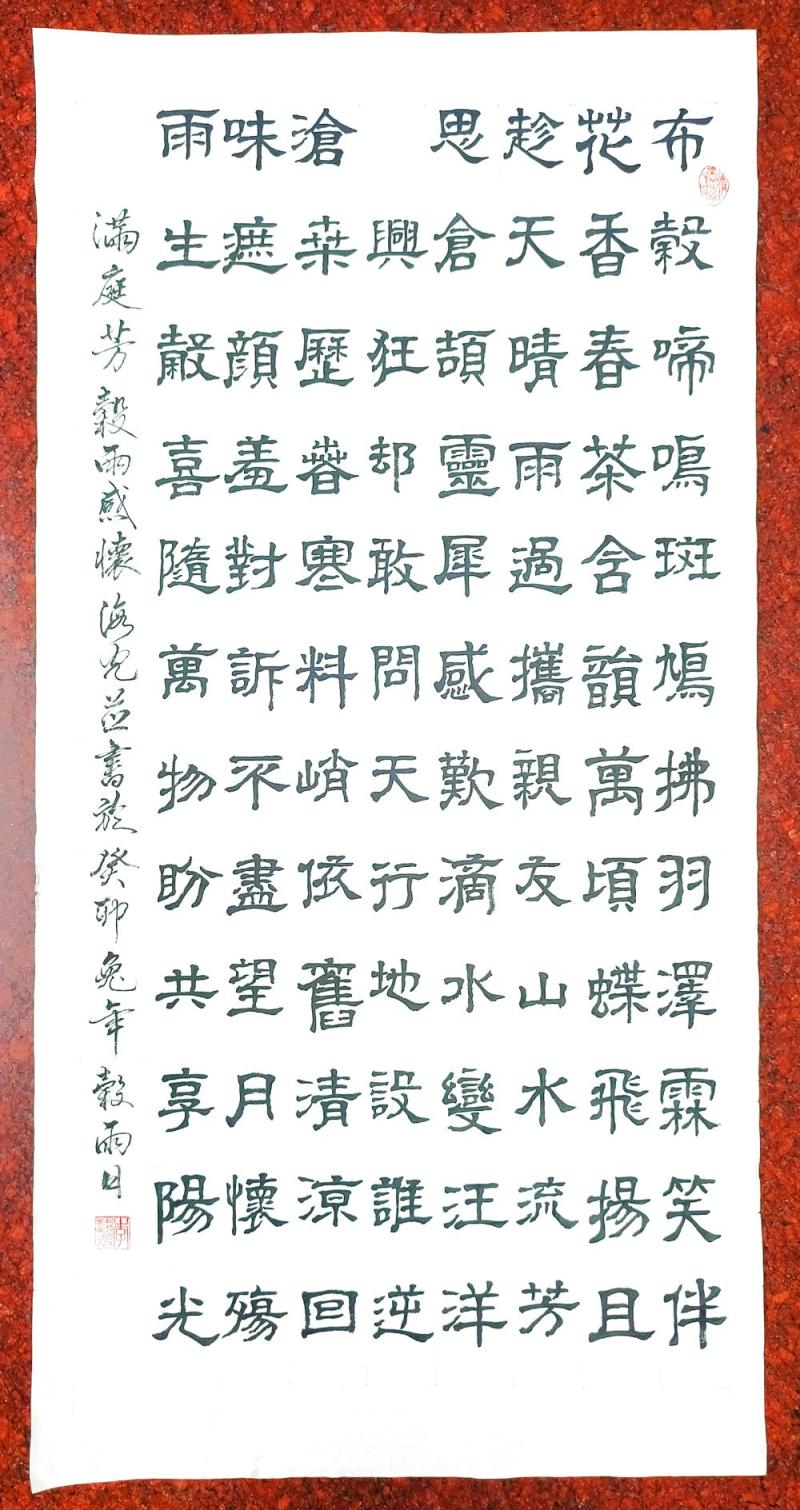 布穀啼鳴斑鳩拂羽澤霖笑伴
花香春茶含韻萬頃蝶飛揚且
趁天晴雨過攜親友山水流芳
思倉頡靈犀感歎滴水變汪洋
興狂却敢問天行地設誰逆
滄桒歷萅寒料峭依舊清涼回
味遮顏羞對訴不盡望月懷殤
雨生穀喜隨萬物盼共享陽光
滿庭芳穀雨感懷海並書於癸卯兔年穀雨日